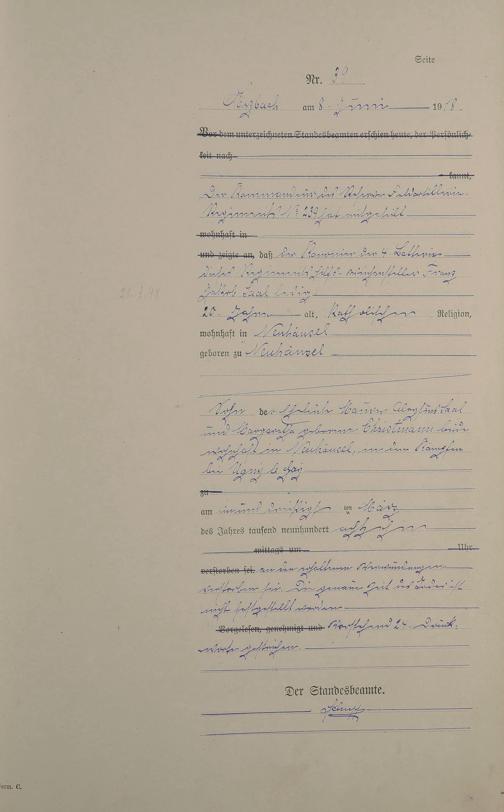 Seite
Nr. 30
am 8. Juni 1918.
Vor dem unterzeichneten Standesbeamten erschien heute, der Persönlich-
keit nach
kannt,
Der Kommandeur des Reserve Feldartillerie
Regiments Nr. 239 hat mitgeteilt
wohnhaft in
und zeigte an, daß der Kanonier der 4. Batterie
dieses Regiments Franz
Jakob Saal ledig
25 Jahre alt, katholischer Religion,
wohnhaft in Neuhäusel
geboren zu Neuhäusel
Sohn der Eheleute Maurer Aloysius Saal
und Margaretha geborene Christmann beide
wohnhaft in Neuhäusel, in den Kämpfen
bei Ugny le Gay
zu
am einunddreißigsten März
des Jahres tausend neunhundert achtzehn
mittags um Uhr
verstorben sei. an den erhaltenen Verwundungen
verstorben sei. Die genaue Zeit des Todes ist
nicht festgestellt worden.
Vorgelesen, genehmigt und Vorstehend 24 Druck-
worte gestrichen.
Der Standesbeamte.
Form. C.